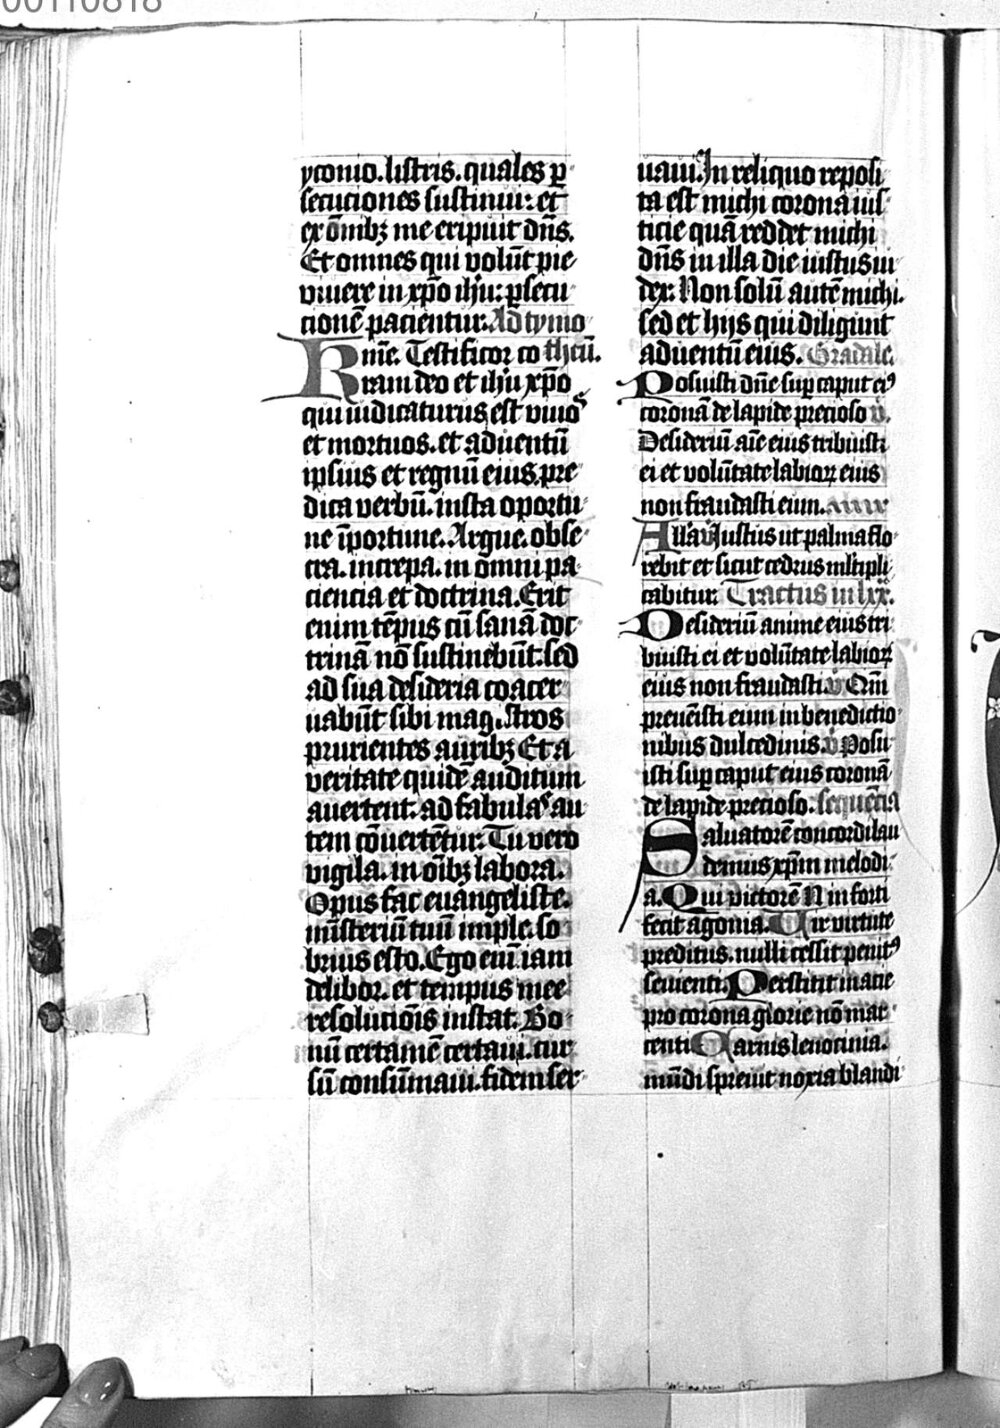 00110818
yconio. listris. quales ꝑ
secuciones sustinui: et
ex om̄ibꝫ me eripuit dn̄s.
Et omnes qui volūt pie
viuere in xp̄o ih̄u: ꝑsecu
cionē pacientur. Ad tymo
Kr̄me. Testificor co theū.
ram deo et ih̄u xp̄o
qui iudicaturus est viuos
et mortuos. et aduentū
ipsius et regnū eius. pre
dica verbū. insta oportu
ne īportune. Argue. obse
cra. increpa. in omni pa
ciencia et doctrina. Erit
enim tēpus cū sanā doc
trinā nō sustinebūt. sed
ad sua desideria coacer
uabūt sibi magistros
prurientes auribꝫ Et a
veritate quidē auditum
auertent. ad fabulas au
tem cōuertētur. Tu vero
vigila. in oībꝫ labora.
Opus fac euangeliste.
mīsterium tuū imple. so
brius esto. Ego eiū iam
delibor. et tempus mee
resolucōis instat. Bo
nū certamē certaui. cur
sū consūmaui. fidem ser
uaui. In reliquo reposi
ta est michi corona ius
ticie quā reddet michi
dn̄s in illa die iustus iu
dex. Non solū autē michi.
sed et hijs qui diligunt
aduentū eius. Gradale.
Posuisti dn̄e suꝑ caput eiꝰ
coronā de lapide precioso v̄.
Desideriū aīe eius tribuisti
ei et volūtate labioꝝ eius
non fraudasti eum.
All'a v̄ Justus ut palma flo
rebit et sicut cedrus ml̄tipli
cabitur. Tractus in lxx.
Desideriū anime eius tri
buisti ei et volūtate labioꝝ
eius non fraudasti. v̄ Qm̄
preuēisti eum in benedictio
nibus dulcedinis. v̄ Posu
isti suꝑ caput eius coronā
de lapide precioso. sequēcia
Saluatorē concordi lau
demus xp̄m melodi
a. Qui victorē N in forti
fecit agonia. Vir virtute
preditus. nulli cessit penitꝰ
seuienti. Perstitit in acie
pro corona glorie nō mar
centi Carnis lenocinia.
mūdi spreuit noxia blandi